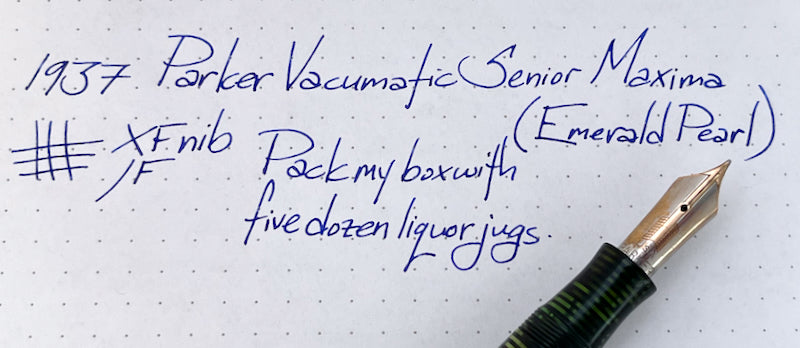 1937 Parker Vacumatic Senior Maxima
(Emerald Pearl)
XF nib
/F
Pack my box with
five dozen liquor jugs.